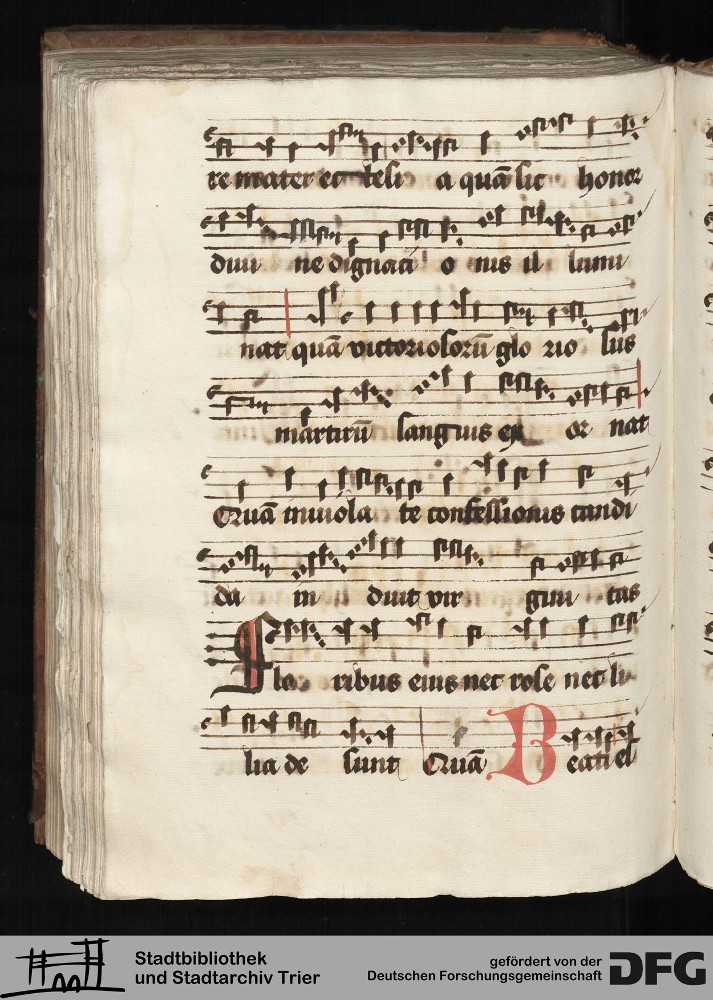 re mater ecclesi a quā sic honor
diui ne dignaci o nis il lumi
nat quā victoriosorū glo rio sus
martirū sanguis ex or nat
Quā inuiola te confessionis candi
da in duit vir gini tas
Flo ribus eius nec rose nec li
lia de sunt Quā Beati es
Stadtbibliothek
und Stadtarchiv Trier
gefördert von der
Deutschen Forschungsgemeinschaft
DFG